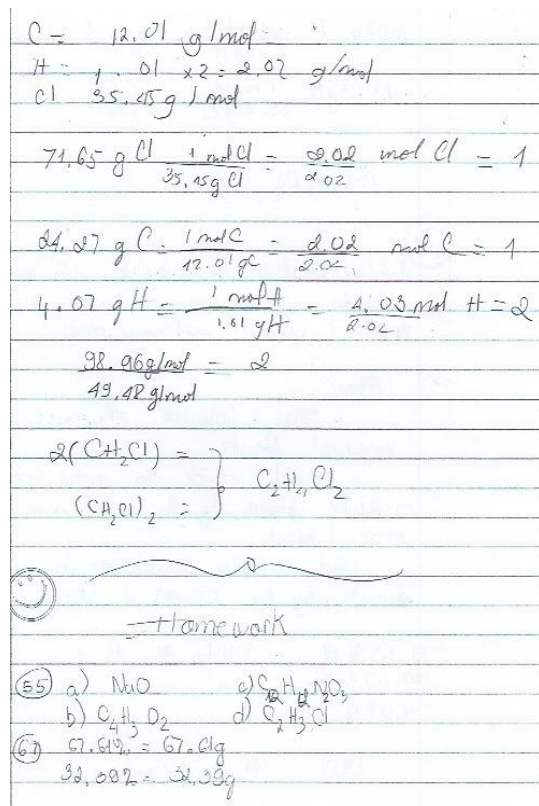 C = 12.01 g/mol
H = 1.01 x2 = 2.02 g/mol
Cl 35.45 g/mol
71.65 g Cl 1 mol Cl / 35.45g Cl = 2.02 / 2.02 mol Cl = 1
24.27 g C = 1 mol C / 12.01 gC = 2.02 / 2.02 mol C = 1
4.07 g H = 1 mol H / 1.01 gH = 4.03 mol / 2.02 H = 2
98.96 g/mol / 49.48 g/mol = 2
2(CH₂Cl) =
(CH₂Cl)₂ = } C₂H₄Cl₂
Homework
55 a) NaO c) C₁₂H₁₂N₂O₃
b) C₄H₃O₂ d) C₂H₃Cl
67.61% = 67.61g
32.39% = 32.39g